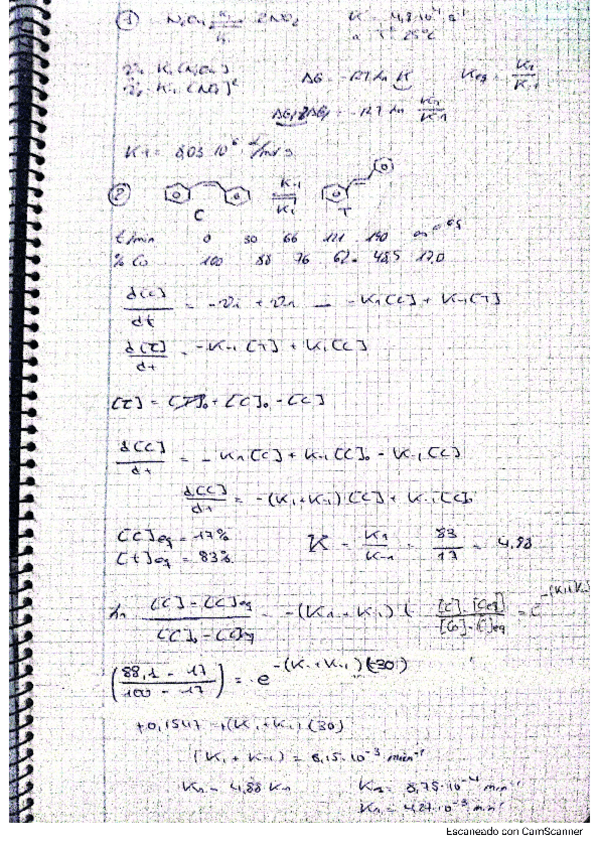 ① N₂O₄ ⇌ 2NO₂ K = 4,8·10⁴ s⁻¹
a Tª 25ºC
ΔG = -RT ln K Keq = K₁/K-1
-RT ln K₁/K-1
K-1 = 8,03·10⁶
② K-1
K₁
C T
t/min 0 30 66 121 140
% Co 100 88 76 62 48,5 17,0
d[C]/dt = -v₁ + v-1 = -K₁[C] + K-1[T]
d[T]/dt = -K-1[T] + K₁[C]
[T] = [T]₀ + [C]₀ - [C]
d[C]/dt = -K₁[C] + K-1[C]₀ - K-1[C]
d[C]/dt = -(K₁+K-1)[C] + K-1[C]₀
[C]eq = 17% K = K₁/K-1 = 83/17 = 4,88
[t]eq = 83%
ln [C]-[C]eq/[C]₀-[C]eq = -(K₁+K-1)t
(88,1 - 17/100 - 17) = e^-(K₁+K-1)(30)
+0,1547 = +(K₁+K-1)(30)
(K₁+K-1) = 5,15·10⁻³ min⁻¹
K₁ = 4,88 K-1 K-1 = 8,75·10⁻⁴ min⁻¹
K₁ = 4,27·10⁻³ min⁻¹
Escaneado con CamScanner